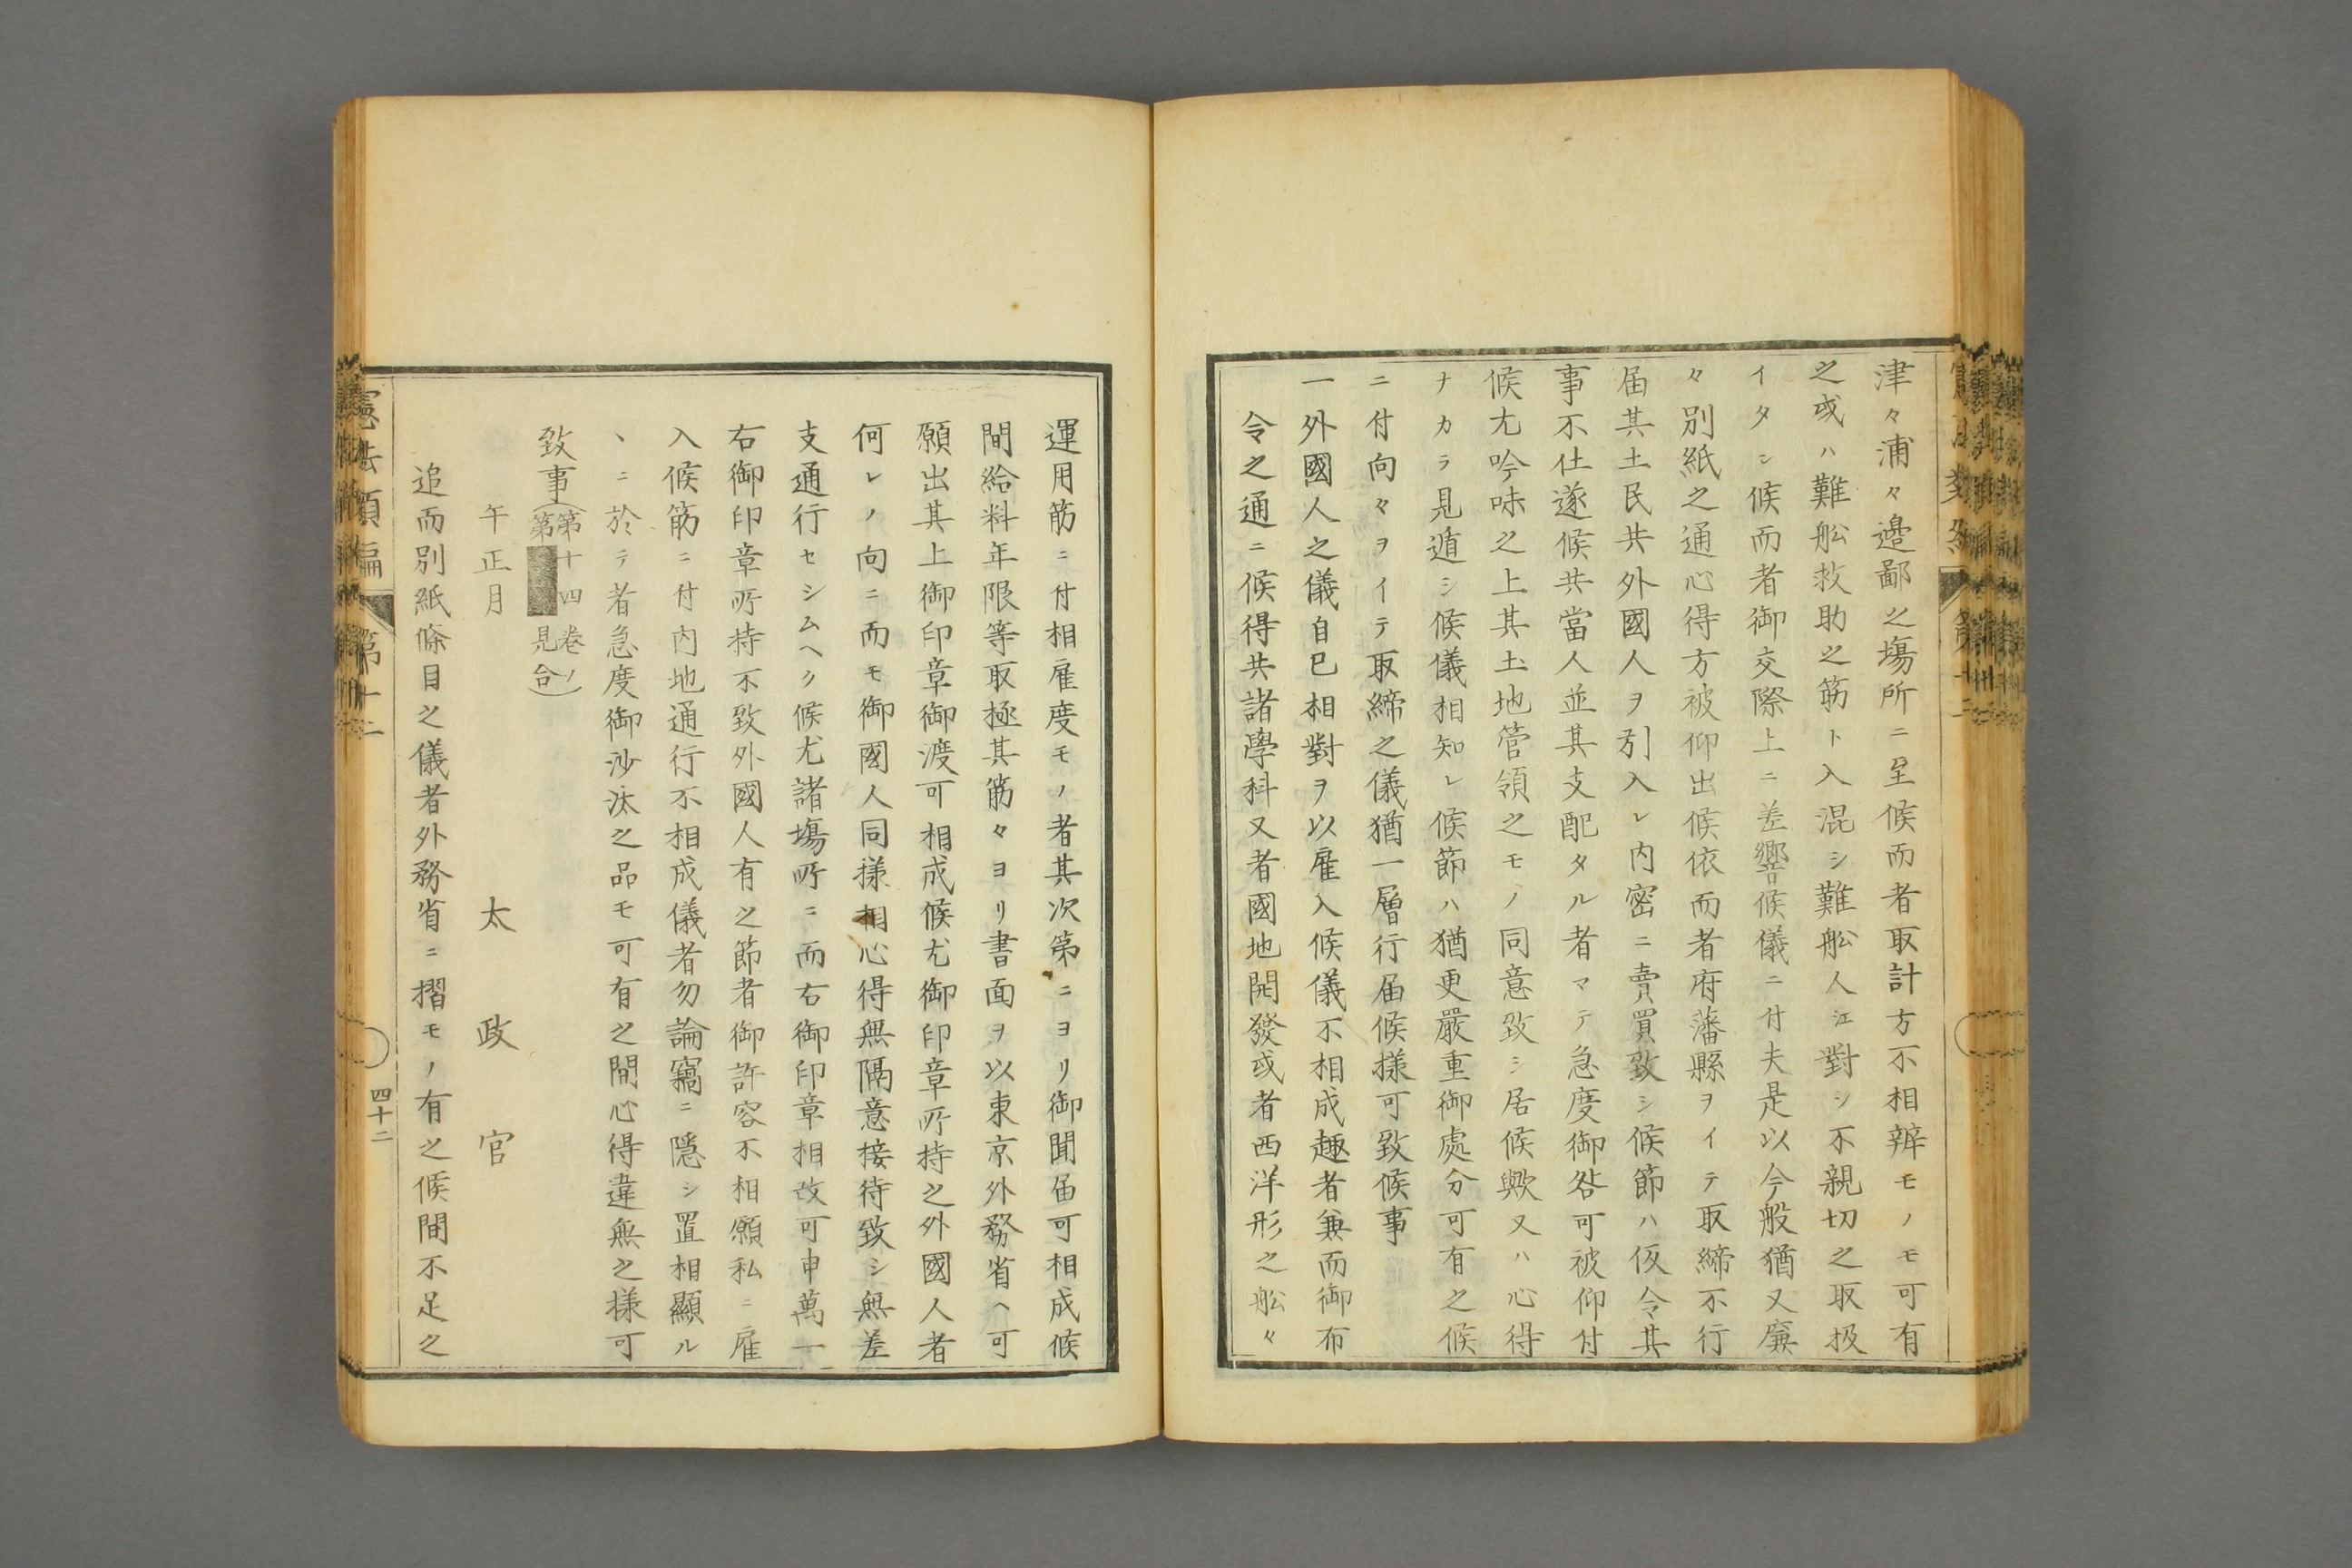 津々浦々邊鄙之塲所ニ至候而者取計方不相辨モノモ可有
之或ハ難舩救助之筋ト入混シ難舩人江對シ不親切之取扱
イタシ候而者御交際上ニ差響候儀ニ付夫是以今般猶又廉
々別紙之通心得方被仰出候依而者府藩縣ヲイテ取締不行
届其土民共外國人ヲ引入レ内密ニ賣買致シ候節ハ仮令其
事不仕遂候共當人並其支配タル者マテ急度御咎可被仰付
候尤吟味之上其土地管領之モノ同意致シ居候歟又ハ心得
ナカラ見遁シ候儀相知レ候節ハ猶更嚴重御處分可有之候
ニ付向々ヲイテ取締之儀猶一層行届候樣可致候事
一外國人之儀自己相對ヲ以雇入候儀不相成趣者兼而御布
令之通ニ候得共諸學科又者國地開發或者西洋形之舩々
運用筋ニ付相雇度モノ者其次第ニヨリ御聞届可相成候
間給料年限等取極其筋々ヨリ書面ヲ以東京外務省ヘ可
願出其上御印章御渡可相成候尤御印章所持之外國人者
何レノ向ニ而モ御國人同樣相心得無隔意接待致シ無差
支通行セシムヘク候尤諸塲所ニ而右御印章相改可申萬一
右御印章所持不致外國人有之節者御許容不相願私ニ雇
入候筋ニ付内地通行不相成儀者勿論竊ニ隱シ置相顯ル
ヽニ於テ者急度御沙汰之品モ可有之間心得違無之樣可
致事（第十四卷ノ
第 見合）
午正月
太政官
追而別紙條目之儀者外務省ニ摺モノ有之候間不足之
憲法類編 第十二
四十二